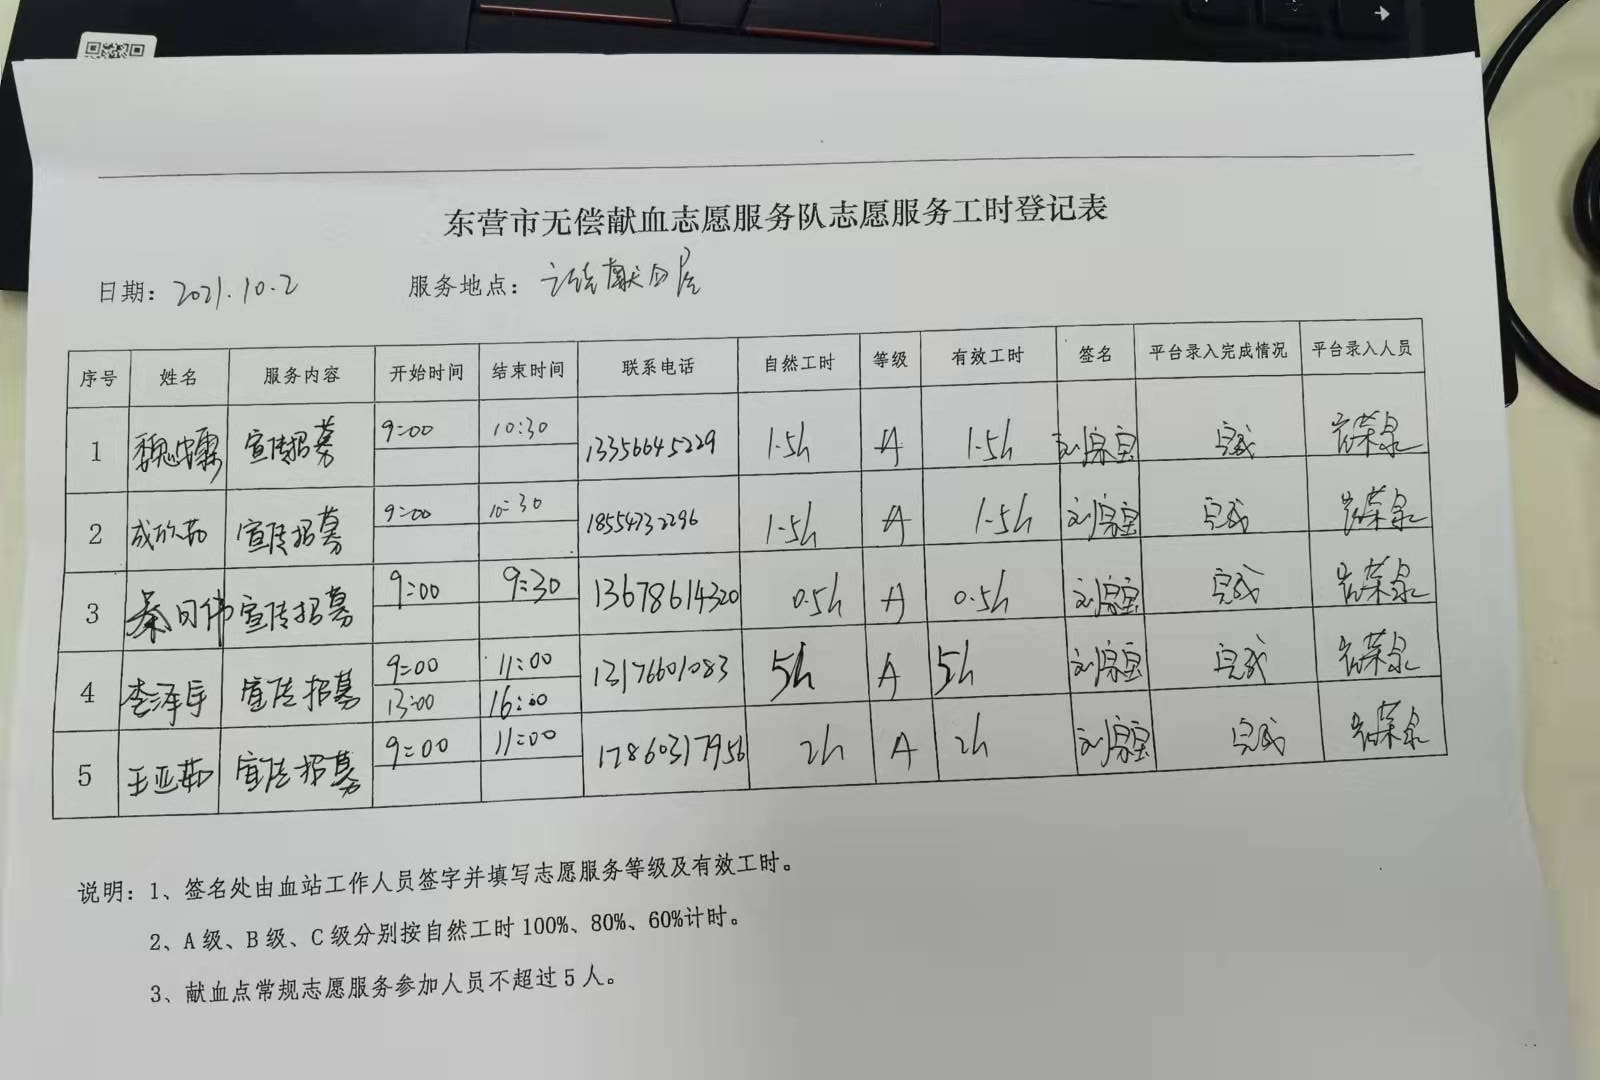 东营市无偿献血志愿服务队志愿服务工时登记表
日期：2021.10.2 服务地点：献血屋
序号 姓名 服务内容 开始时间 结束时间 联系电话 自然工时 等级 有效工时 签名 平台录入完成情况 平台录入人员
1 宣传招募 9:00 10:30 13356645229 1.5h A 1.5h 完成 荣泉
2 成欣茹 宣传招募 9:00 10:30 18554732296 1.5h A 1.5h 完成 荣泉
3 秦日伟 宣传招募 9:00 9:30 13678614320 0.5h A 0.5h 完成 荣泉
4 李泽宇 宣传招募 9:00 11:00 13176601083 5h A 5h 完成 荣泉
13:00 16:00
5 王亚茹 宣传招募 9:00 11:00 17860317956 2h A 2h 完成 荣泉
说明：1、签名处由血站工作人员签字并填写志愿服务等级及有效工时。
2、A 级、B 级、C 级分别按自然工时 100%、80%、60%计时。
3、献血点常规志愿服务参加人员不超过 5 人。